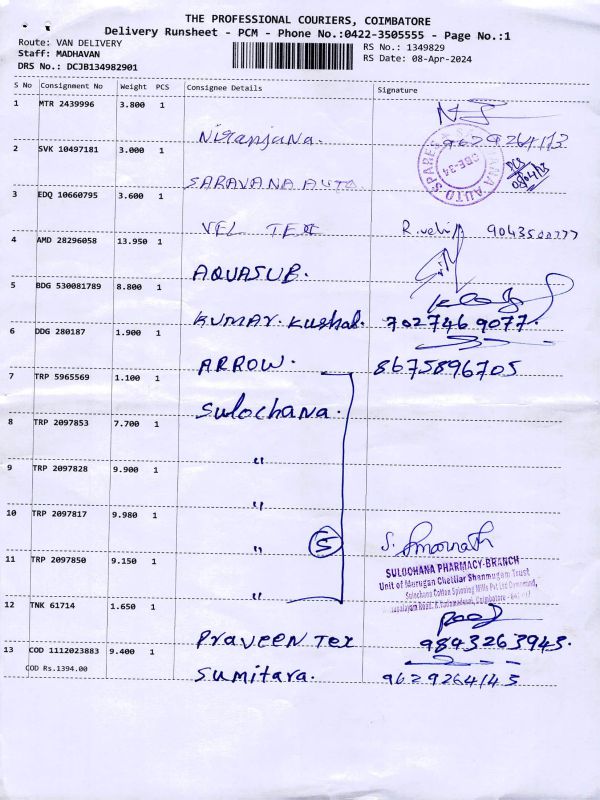 THE PROFESSIONAL COURIERS, COIMBATORE
Delivery Runsheet - PCM - Phone No.:0422-3505555 - Page No.:1
Route: VAN DELIVERY
Staff: MADHAVAN
DRS No.: DCJB134982901
RS No.: 1349829
RS Date: 08-Apr-2024
S No Consignment No Weight PCS Consignee Details Signature
1 MTR 2439996 3.800 1
Niranjana.
2 SVK 10497181 3.000 1
SARAVANA AUTO
3 EDQ 10660795 3.600 1
VEL TEX R.velu 9043500777
4 AMD 28296058 13.950 1
AQUASUB.
5 BDG 530081789 8.800 1
KUMAR. Kushal. 702746 9077.
6 DDG 280187 1.900 1
ARROW. 8675896705
7 TRP 5965569 1.100 1
Sulochana.
8 TRP 2097853 7.700 1
"
9 TRP 2097828 9.900 1
"
10 TRP 2097817 9.980 1
" 5 S. Amarnath
11 TRP 2097850 9.150 1
SULOCHANA PHARMACY-BRANCH
Unit of Murugan Chettiar Shanmugam Trust
Sulochana Cotton Spinning Mills Pvt Ltd
"
12 TNK 61714 1.650 1
Praveen Tex 9843263943.
13 COD 1112023883 9.400 1
COD Rs.1394.00
Sumitara. 9629264143